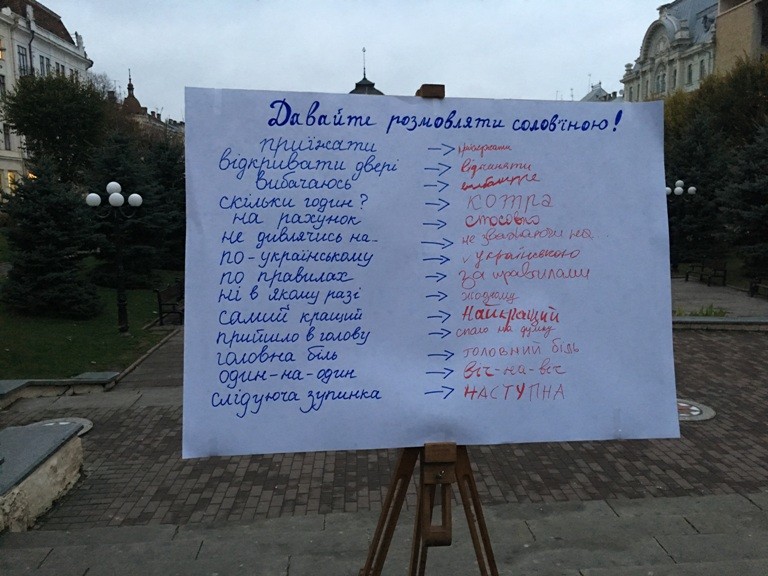 Давайте розмовляти солов'їною!
приїжати → приїжджати
відкривати двері → відчиняти
вибачаюсь →
скільки годин? → котра
на рахунок → стосовно
не дивлячись на.. → не зважаючи на..
по-українському → українською
по правилах → за правилами
ні в якому разі → жодному
самий кращий → Найкращий
прийшло в голову → спало на думку
головна біль → головний біль
один-на-один → віч-на-віч
слідуюча зупинка → НАСТУПНА